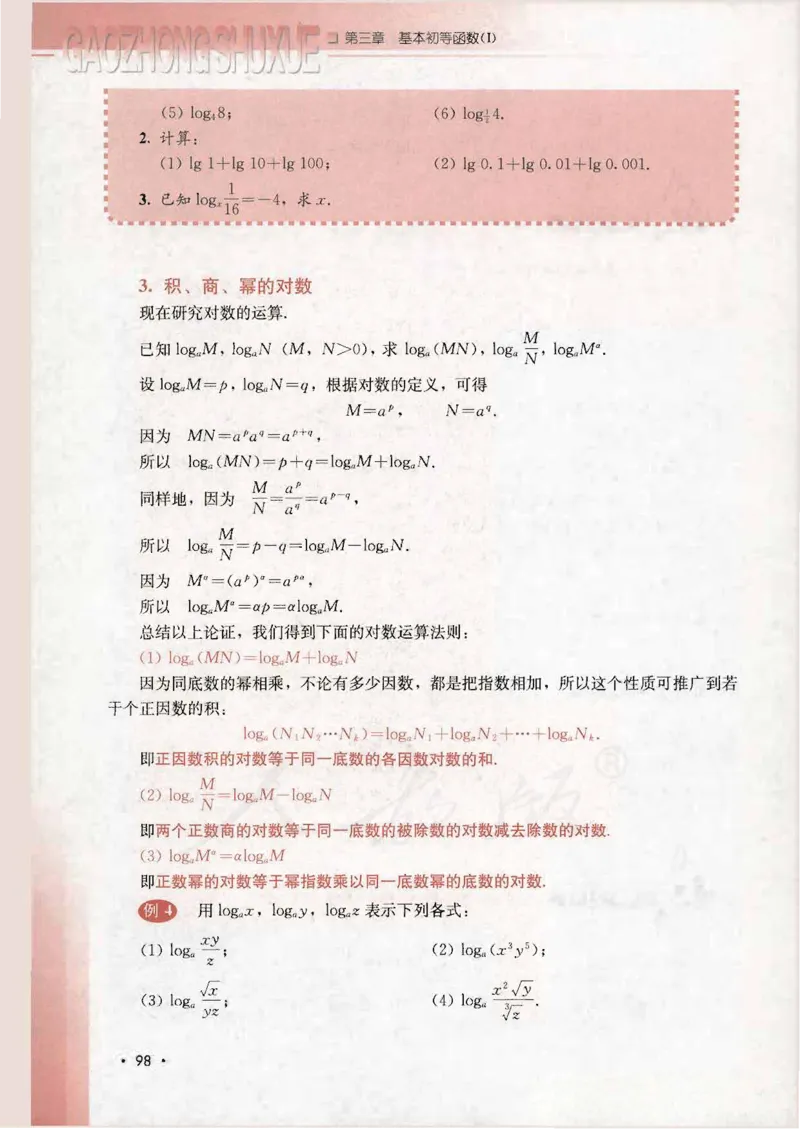 GAOZHONGSHUXUE
第三章 基本初等函数(Ⅰ)
(5) log₄8; (6) log_{1/4}4.
2. 计算:
(1) lg 1+lg 10+lg 100; (2) lg 0.1+lg 0.01+lg 0.001.
3. 已知 logₓ 1/16 =-4, 求 x.
3. 积、商、幂的对数
现在研究对数的运算.
已知 logₐM, logₐN (M, N>0), 求 logₐ(MN), logₐ M/N, logₐM^α.
设 logₐM=p, logₐN=q, 根据对数的定义, 可得
M=a^p, N=a^q.
因为 MN=a^p a^q=a^{p+q},
所以 logₐ(MN)=p+q=logₐM+logₐN.
同样地, 因为 M/N = a^p/a^q =a^{p-q},
所以 logₐ M/N =p-q=logₐM-logₐN.
因为 M^α=(a^p)^α=a^{pα},
所以 logₐM^α=αp=αlogₐM.
总结以上论证, 我们得到下面的对数运算法则:
(1) logₐ(MN)=logₐM+logₐN
因为同底数的幂相乘, 不论有多少因数, 都是把指数相加, 所以这个性质可推广到若
干个正因数的积:
logₐ(N₁N₂…N_k)=logₐN₁+logₐN₂+…+logₐN_k.
即正因数积的对数等于同一底数的各因数对数的和.
(2) logₐ M/N =logₐM-logₐN
即两个正数商的对数等于同一底数的被除数的对数减去除数的对数.
(3) logₐM^α=αlogₐM
即正数幂的对数等于幂指数乘以同一底数幂的底数的对数.
例 4 用 logₐx, logₐy, logₐz 表示下列各式:
(1) logₐ xy/z; (2) logₐ(x³y⁵);
(3) logₐ √x/yz; (4) logₐ x²√y/∛z.
· 98 ·